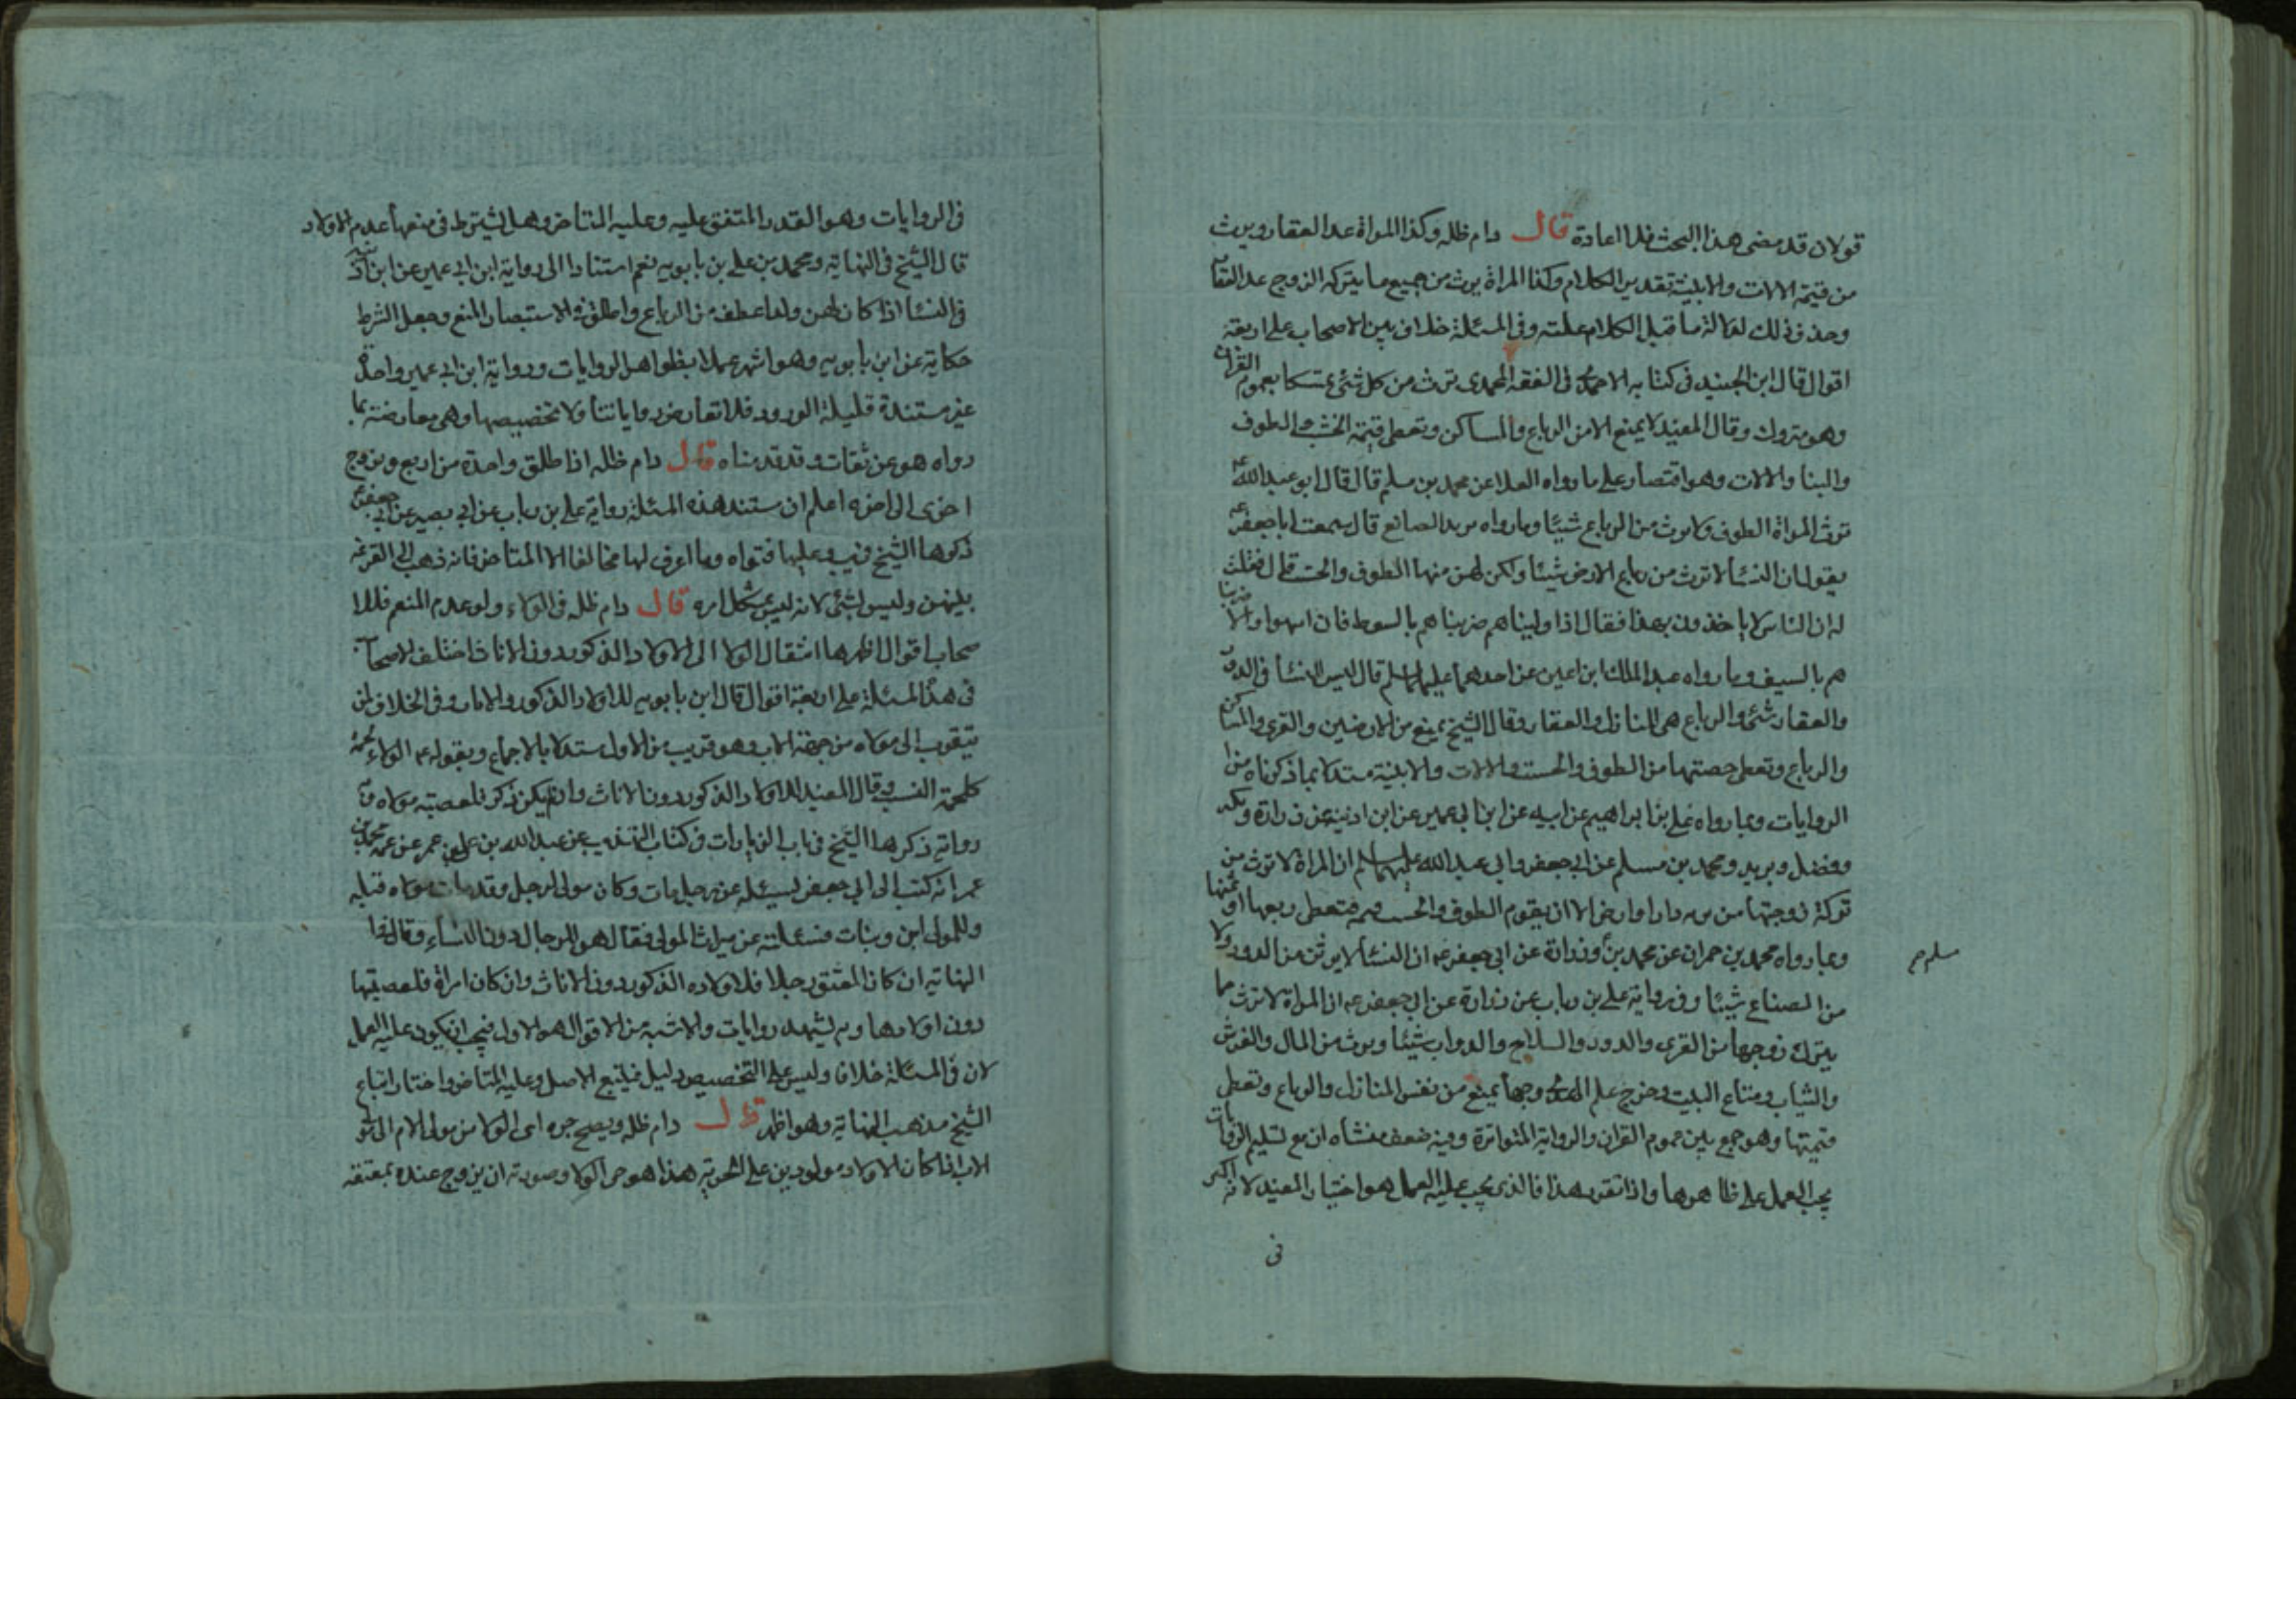 قولان قد مضى هذا البحث فلا اعادة قال دام ظله وكذا المراة عدا العقار ويرث
من قيمة الالات والابنية تقدير الكلام وكذا المراة يرث من جميع ما يتركه الزوج عدا العقار
وحذف ذلك لدلالة ما قبل الكلام عليه وفي المسئلة خلاف بين الاصحاب على اربعة
اقوال قال ابن الجنيد في كتابه الاحمدي في الفقه المحمدي ترث من كل شئ تمسكا بعموم القران
وهو متروك وقال المفيد لا يمنع الا من الرباع والمساكن وتعطى قيمة الخشب والطوف
والبنا والالات وهو اقتصار على ما رواه العلا عن محمد بن مسلم قال قال ابو عبد الله ع
ترث المراة الطوف ولا يرث من الرباع شيئا وما رواه يزيد الصائغ قال سمعت ابا جعفر ع
يقول ان النسأ لا ترث من رباع الارض شيئا ولكن لهن منها الطوف والخشب قال فقلت
له ان الناس لا ياخذون بهذا فقال اذا ولينا هم ضربناهم بالسوط فان انتهوا والا ضربنا
هم بالسيف وما رواه عبد الملك ابن اعين عن احدهما عليهما السلم قال ليس للنسأ في الدور
والعقار شئ والرباع هى المنازل والعقار وقال الشيخ يمنع من الارضين والقرى والمساكن
والرباع وتعطى حصتها من الطوف والخشب والالات والابنية مستدلا بما ذكرناه من
الروايات وبما رواه على بن ابراهيم عن ابيه عن ابن ابى عمير عن ابن اذينه عن زرارة وبكير
وفضل وبريد ومحمد بن مسلم عن ابى جعفر وابى عبد الله عليهما السلم ان المراة لا ترث من
تركة زوجها من تربه دار او ارض الا ان يقوم الطوف والخشب قيمة فتعطى ربعها او ثمنها
وبما رواه محمد بن حمران عن محمد بن وزرارة عن ابى جعفر ع ان النسأ لا يرثن من الدور ولا
مسلم صح
من الضياع شيئا وفى رواية على بن رباب عن زرارة عن ابى جعفر ع ان المراة لا ترث مما
يترك زوجها من القرى والدور والسلاح والدواب شيئا وترث من المال والفرش
والثياب ومتاع البيت وخرج علم الهدى وجها يمنع من نفس المنازل والرباع وتعطى
قيمتها وهو جمع بين عموم القران والرواية المتواترة وفيه ضعف منشاه ان مع تسليم الروايات
يجب العمل على ظاهرها واذا تقرر هذا فالذى يجب عليه العمل هو اختيار المفيد لانه اكثر
فى
فى الروايات وهو القدر المتفق عليه وعليه المتاخر وهل يشترط فى منعها عدم الاولاد
قال الشيخ فى النهاية ومحمد بن على بن بابويه نعم استنادا الى رواية ابن ابى عمير عن ابن اذينه
فى النسأ اذا كان لهن ولد اعطف من الرباع واطلق فى الاستبصار المنع وجعل الشرط
حكاية عن ابن بابويه وهو اشهر عملا بظواهر الروايات ورواية ابن ابى عمير واحدة
غير مستندة قليلة الورود فلا تعارض رواياتنا ولا تخصيصها وهى معارضة بما
رواه هو عن ثقات وقد قدمناه قال دام ظله اذا طلق واحدة من اربع وتزوج
اخرى الى اخره اعلم ان مستند هذه المسئلة رواية على بن رباب عن ابى بصير عن ابى جعفر ع
ذكرها الشيخ فى يب وعليها فتواه وما اعرف لها مخالفا الا المتاخر فانه ذهب الى القرعة
بينهن وليس بشئ لانه ليس بمشكل امره قال دام ظله فى الولاء ولو عدم المنعم فللا
صحاب اقوال اظهرها انتقال الولا الى الاولاد الذكور دون الاناث اختلف الاصحاب
فى هذا المسئلة على اربعة اقوال قال ابن بابويه للاولاد الذكور والاناث وفى الخلاف لمن
يتقرب الى مولاه من جهة الاب وهو قريب من الاول مستدلا بالاجماع وبقوله ع الولاء لحمة
كلحمة النسب وقال المفيد للاولاد الذكور دون الاناث وان لم يكن ذكر فلعصبة مولاه
رواية ذكرها الشيخ فى باب الزيادات فى كتاب التهذيب عن عبد الله بن على بن عمر عن عمه محمد بن
عمر انه كتب الى ابى جعفر يسئله عن رجل مات وكان مولى لرجل وقد مات مولاه قبله
وللمولى ابن وبنات فسئلته عن ميراث المولى فقال هو للرجال دون النسأء وقال فى
النهاية ان كان المعتق رجلا فلاولاده الذكور دون الاناث وان كان امراة فلعصبتها
دون اولادها وبه يشهد روايات والاشبه من الاقوال هو الاول فيجب ان يكون عليه العمل
لان فى المسئلة خلافا وليس على التخصيص دليل فيتبع الاصل وعليه المتاخر واختار اتباع
الشيخ مذهب النهاية وهو اظهر قال دام ظله ويصح جره اى الولا من مولى الام الى مولى
الاب اذا كان الاولاد مولودين على الحرية هذا هو جر الولا وصورته ان يزوج عنده بمعتقة